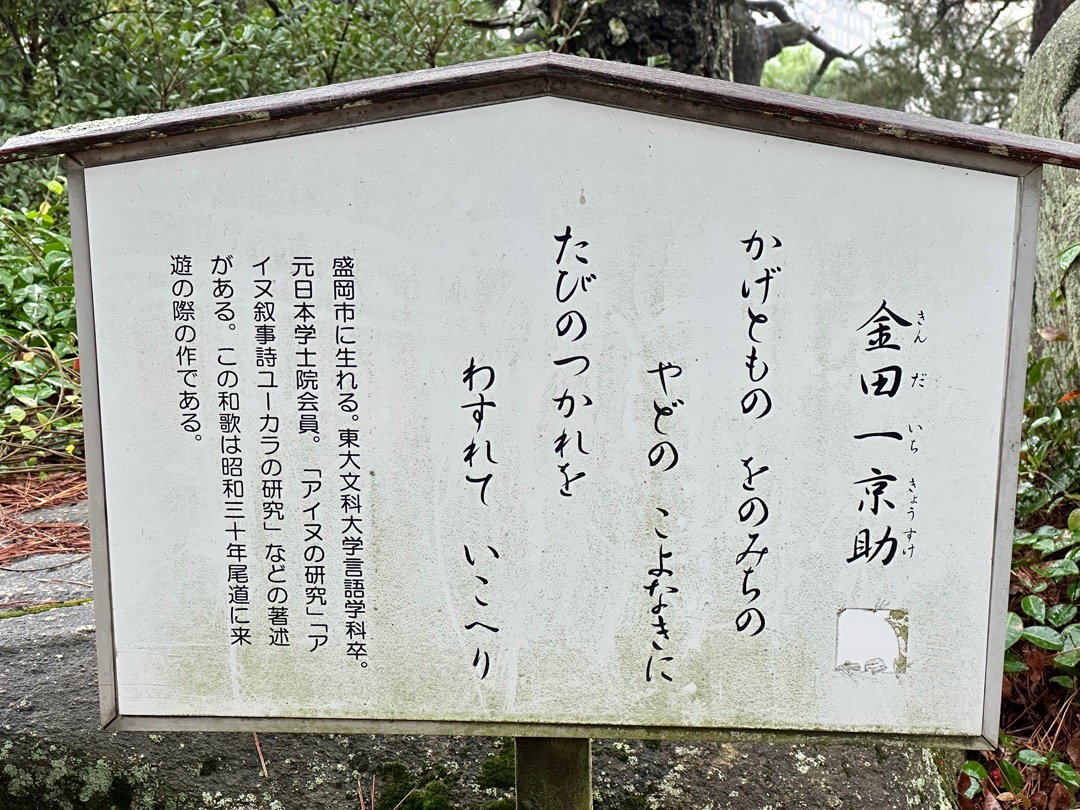 金田一京助
きん だ いち きょうすけ
かげともの をのみちの
やどの こよなきに
たびのつかれを
わすれて いこへり
盛岡市に生れる。東大文科大学言語学科卒。
元日本学士院会員。「アイヌの研究」「ア
イヌ叙事詩ユーカラの研究」などの著述
がある。この和歌は昭和三十年尾道に来
遊の際の作である。